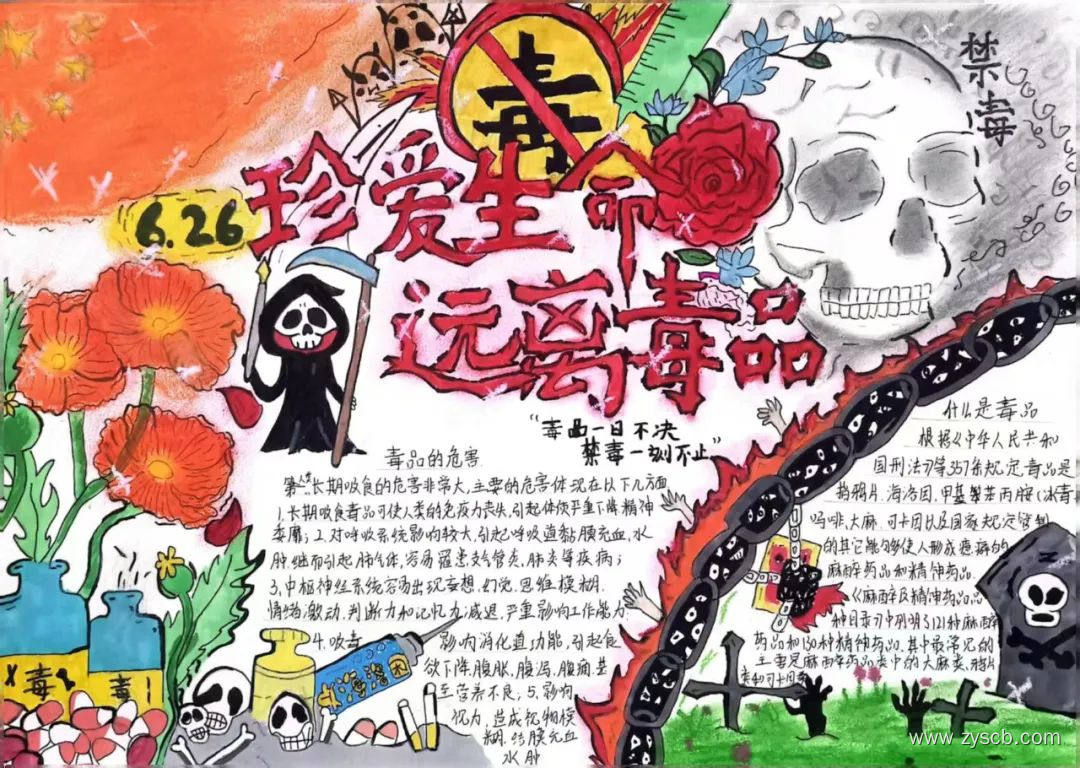 毒
禁毒
6.26
珍爱生命
远离毒品
"毒品一日不决
禁毒一刻不止"
毒品的危害
长期吸食的危害非常大,主要的危害体现在以下几方面
1.长期吸食毒品可使人类的免疫力丧失,引起体质严重下降,精神
萎靡;2.对呼吸系统影响较大,引起呼吸道黏膜充血,水
肿,继而引起肺气体,容易罹患支气管炎,肺炎等疾病;
3.中枢神经系统容易出现妄想.幻觉.思维模糊.
情绪激动.判断力和记忆力减退.严重影响工作能力
4.吸毒
影响消化道功能,引起食
欲下降,腹胀,腹泻,腹痛,甚
至营养不良;5.影响
视力,造成视物模
糊.结膜充血
水肿
海洛因
毒
毒
什么是毒品
根据《中华人民共和
国刑法》第357条规定,毒品是
指鸦片.海洛因.甲基苯丙胺(冰毒)
吗啡.大麻.可卡因以及国家规定管制
的其它能够使人形成瘾癖的
麻醉药品和精神药品.
《麻醉及精神药品品
种目录》中列明了121种麻醉
药品和130种精神药品.其中最常见的
主要是麻醉药品类中的大麻类.鸦片
类和可卡因类
www.zyscb.com